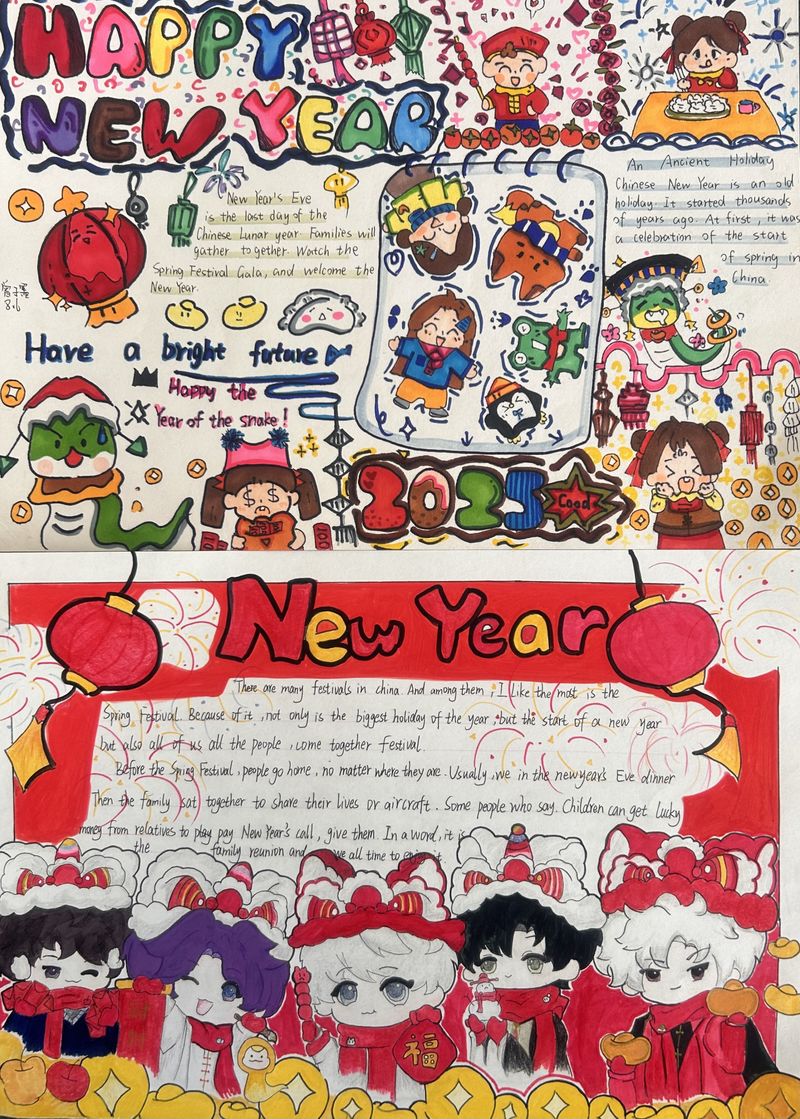 HAPPY
NEW YEAR
An Ancient Holiday
Chinese New Year is an old
holiday. It started thousands
of years ago. At first, it was
a celebration of the start
of spring in
China.
New Year's Eve
is the last day of the
Chinese Lunar year. Families will
gather together. Watch the
Spring Festival Gala, and welcome the
New Year.
8.6
Have a bright future
Happy the
Year of the snake!
2025
Good
New Year
There are many festivals in china. And among them, I Like the most is the
Spring Festival. Because of it, not only is the biggest holiday of the year, but the start of a new year
but also all of us all the people, come together festival.
Before the Spring Festival, people go home, no matter where they are. Usually, we in the newyear's Eve dinner
Then the family sat together to share their lives or aircraft. Some people who say. Children can get lucky
money from relatives to play pay New Year's call, give them. In a word, it is
the family reunion and we all time to enjoy it.
福